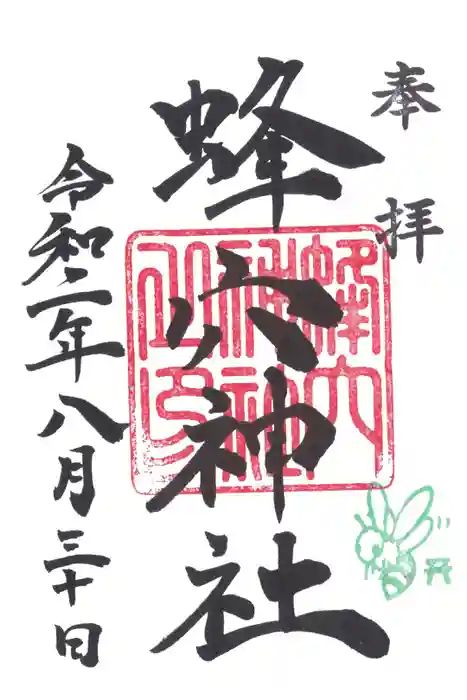 奉拝
蜂穴神社
蜂穴神社之印
令和二年八月三十日